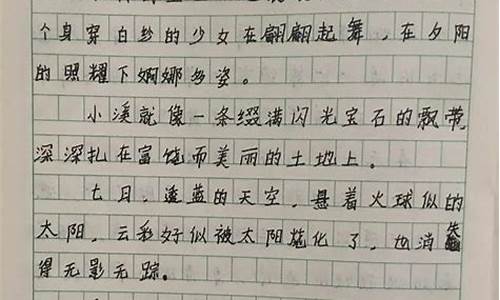 个身穿白纱的少女在翩翩起舞，在夕阳
的照耀下婀娜多姿。
小溪就像一条缀满闪光宝石的飘带，
深深扎在富饶而美丽的土地上。
七月，透蓝的天空，悬着火球似的
太阳，云彩好似被太阳熔化了，也消失
得无影无踪。